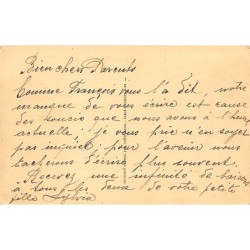 Bien chers Parents
Comme François vous l'à dit, notre
manque de vous écrire est cause
des soucis que nous avons à l'heure
actuelle ; je vous prie n'en soyez
pas inquiet, pour l'avenir nous
tacherons d'écrire plus souvent.
Recevez une infinité de baisers
à tous les deux de votre petite
fille Sylvia